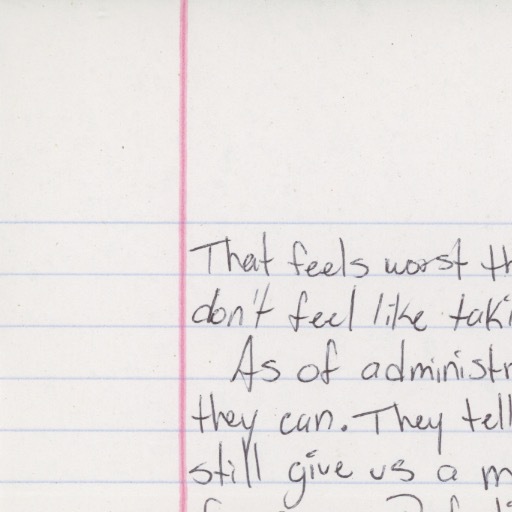 That feels worst th
don't feel like taki
As of administr
they can. They tell
still give us a m